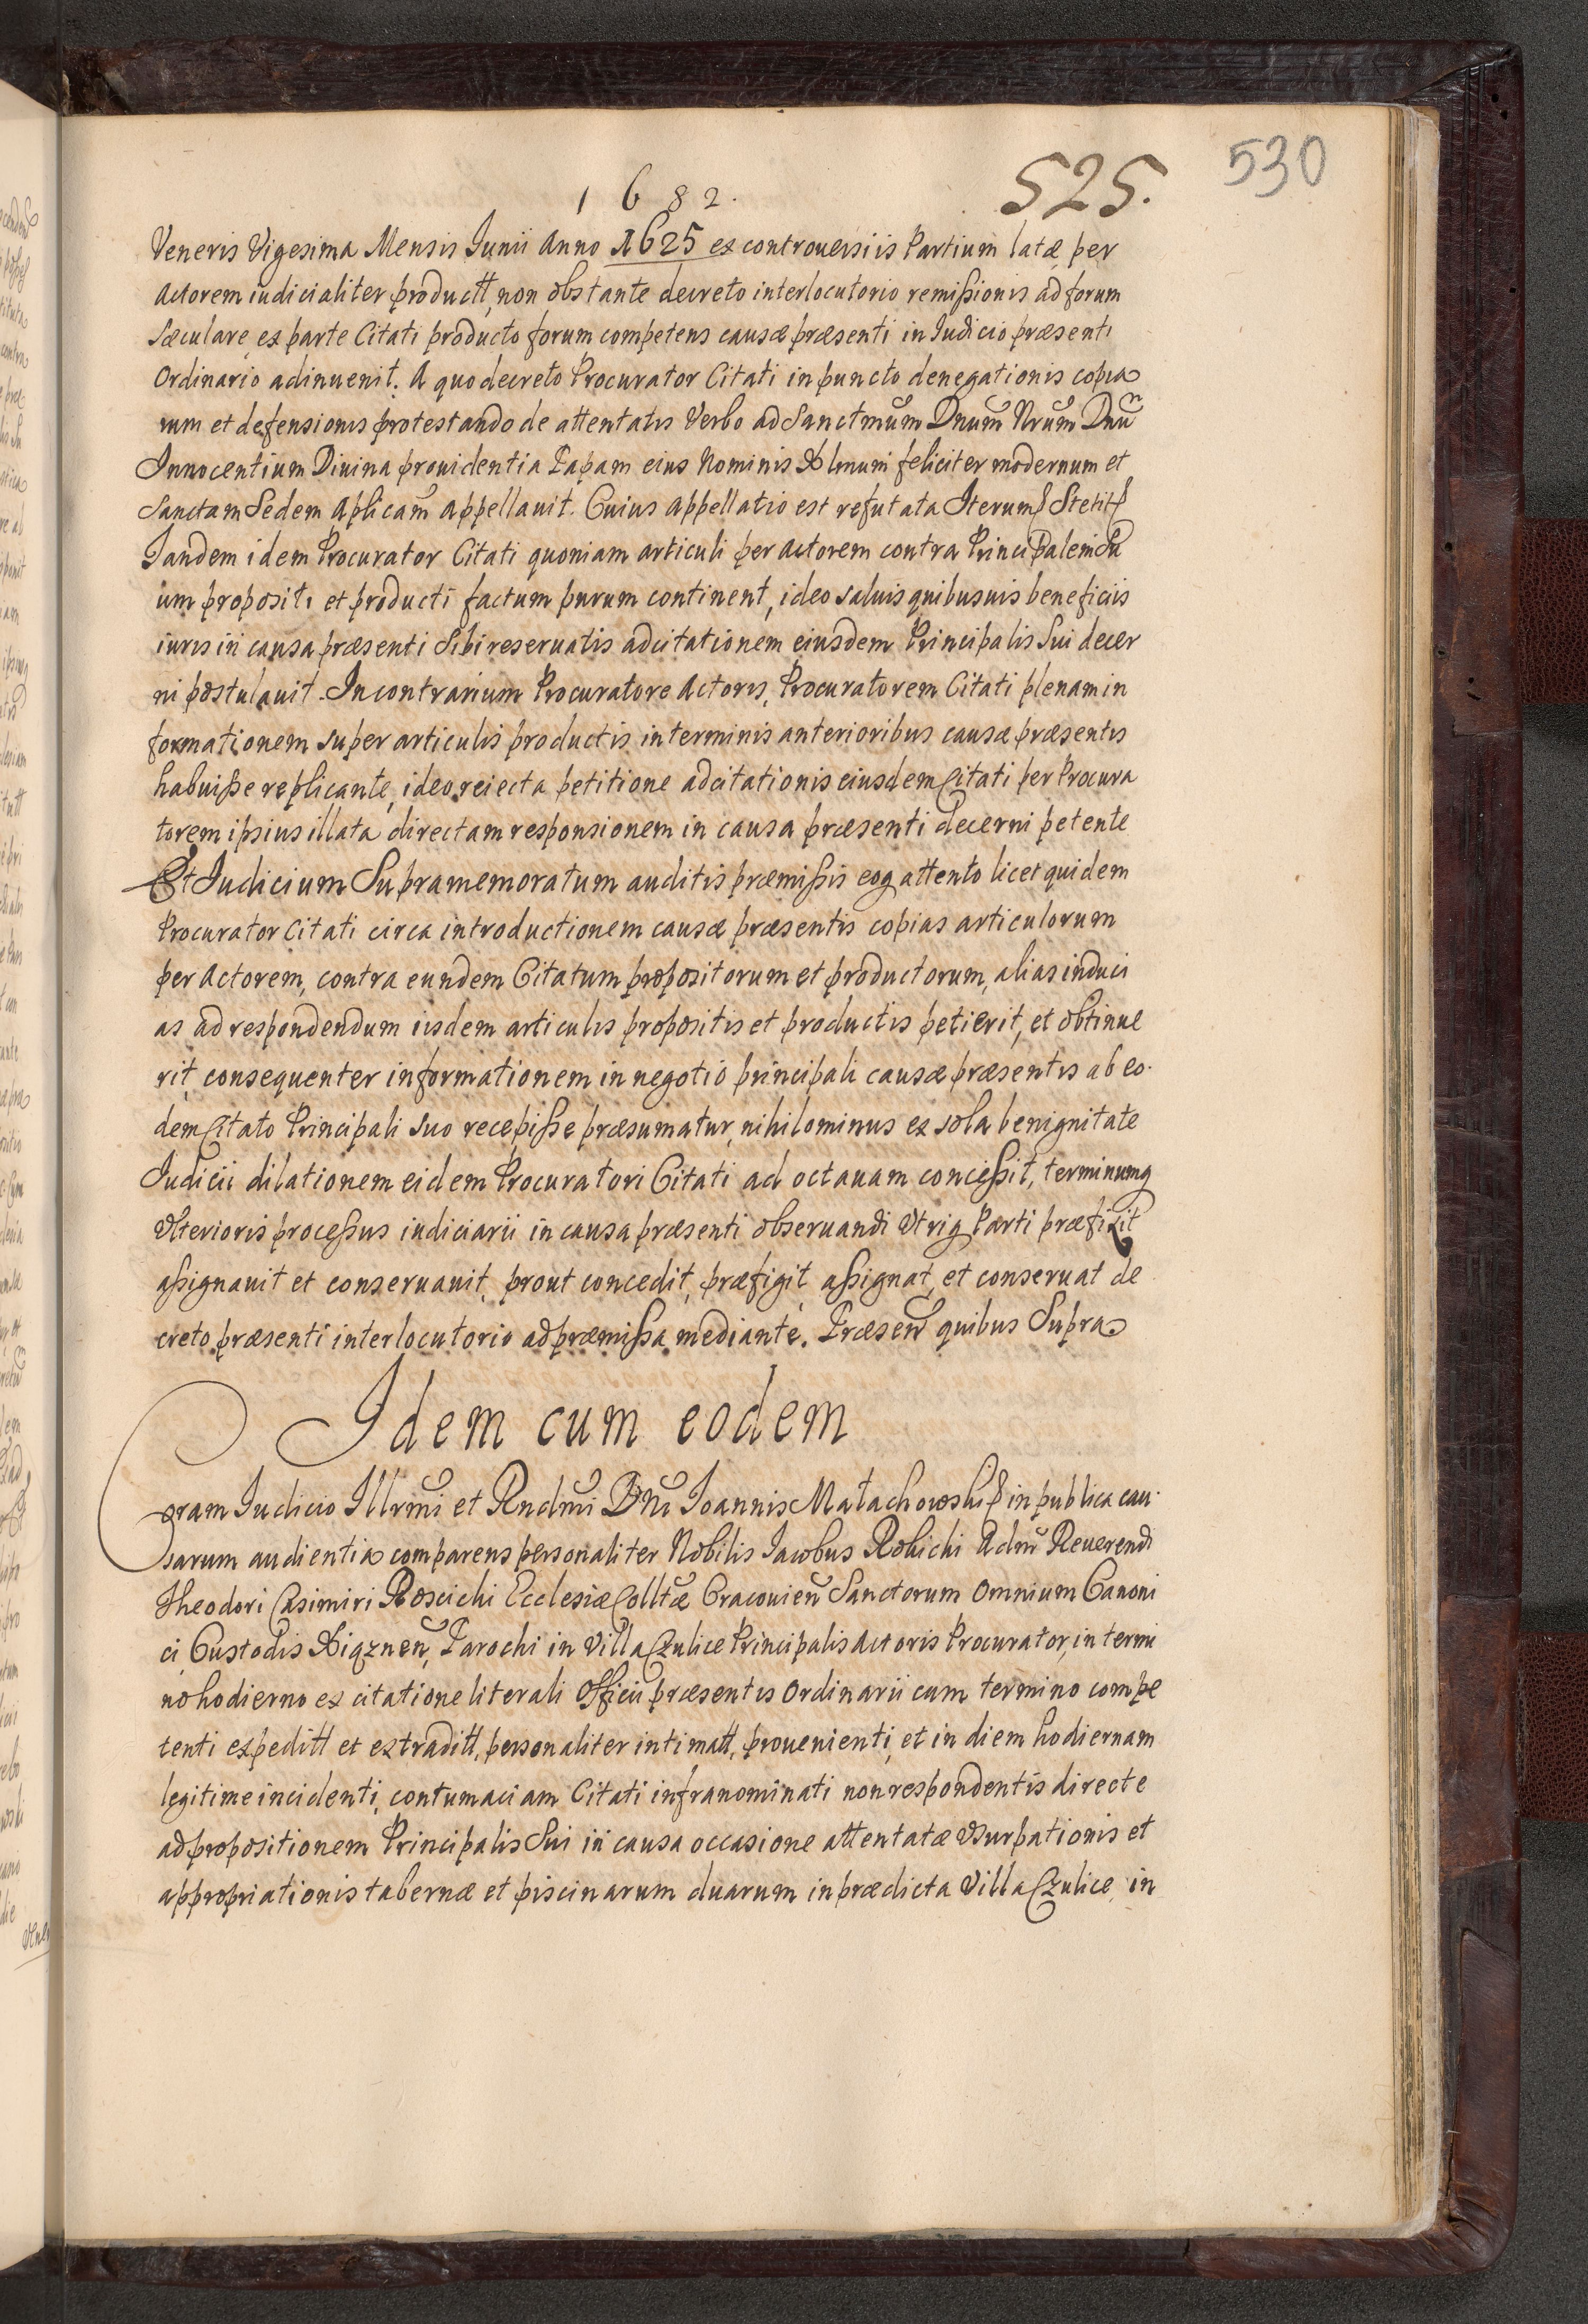 530
525.
1682.
Veneris Vigesima Mensis Iunii Anno 1625 ex controuersiis Partium latæ per
Actorem iudicialiter productt, non obstante decreto interlocutorio remißionis ad forum
Sæculare ex parte Citati producto forum competens causæ præsenti in Iudicio præsenti
Ordinario adinuenit. A quo decreto Procurator Citati in puncto denegationis copia
rum et defensionis protestando de attentatis Verbo ad Sanctmũm Dnum Nrum Dnũ
Innocentium Diuina prouidentia Papam eius Nominis XImum feliciter modernum et
Sanctam Sedem Aplicam̃ Appellauit. Cuius Appellatio est refutata Iterum Stetit
Tandem idem Procurator Citati quoniam articuli per Actorem contra Principalem Su
um propositi et producti factum purum continent, ideo saluis quibusuis beneficiis
iuris in causa præsenti Sibi reseruatis adcitationem eiusdem Principalis Sui decer
ni postulauit. In contrarium Procuratore Actoris, Procuratorem Citati plenam in
formationem super articulis productis in terminis anterioribus causæ præsentis
habuiße replicante, ideo reiecta petitione adcitationis eiusdem Citati per Procura
torem ipsius illata directam responsionem in causa præsenti decerni petente
Et Iudicium Supramemoratum auditis præmißis eoq attento licet quidem
Procurator Citati circa introductionem causæ præsentis copias articulorum
per Actorem, contra eundem Citatum propositorum et productorum, alias induci
as ad respondendum iisdem articulis propositis et productis petierit, et obtinue
rit consequenter informationem in negotio principali causæ præsentis ab eo.
dem Citato Principali Suo recepiße præsumatur, nihilominus ex sola benignitate
Iudicii dilationem eidem Procuratori Citati ad octauam conceßit, terminumq
Vlterioris proceßus iudiciarii in causa præsenti obseruandi Vtriq Parti præfixit
aßignauit et conseruauit, prout concedit, præfigit, aßignat, et conseruat de
creto præsenti interlocutorio ad præmißa mediante. Præseñ quibus Supra
Idem cum eodem
Coram Iudicio Illrmi et Rndmi Dni Ioannis Małachowski in publica cau.
sarum audientia comparens personaliter Nobilis Iacobus Robicki Admũ Reuerendi
Theodori Casimiri Roscichi Ecclesiæ Colltæ Cracouieñ Sanctorum Omnium Canoni
ci Custodis Xiązneñ, Parochi in Villa Czulice Principalis Actoris Procurator, in termi
no hodierno ex citatione literali Officii præsentis Ordinarii cum termino compe
tenti expeditt et extraditt, personaliter intimatt, prouenienti, et in diem hodiernam
legitime incidenti, contumaciam Citati infranominati non respondentis directe
ad propositionem Principalis Sui in causa occasione attentatæ Vsurpationis et
appropriationis tabernæ et piscinarum duarum in prædicta Villa Czulice, in